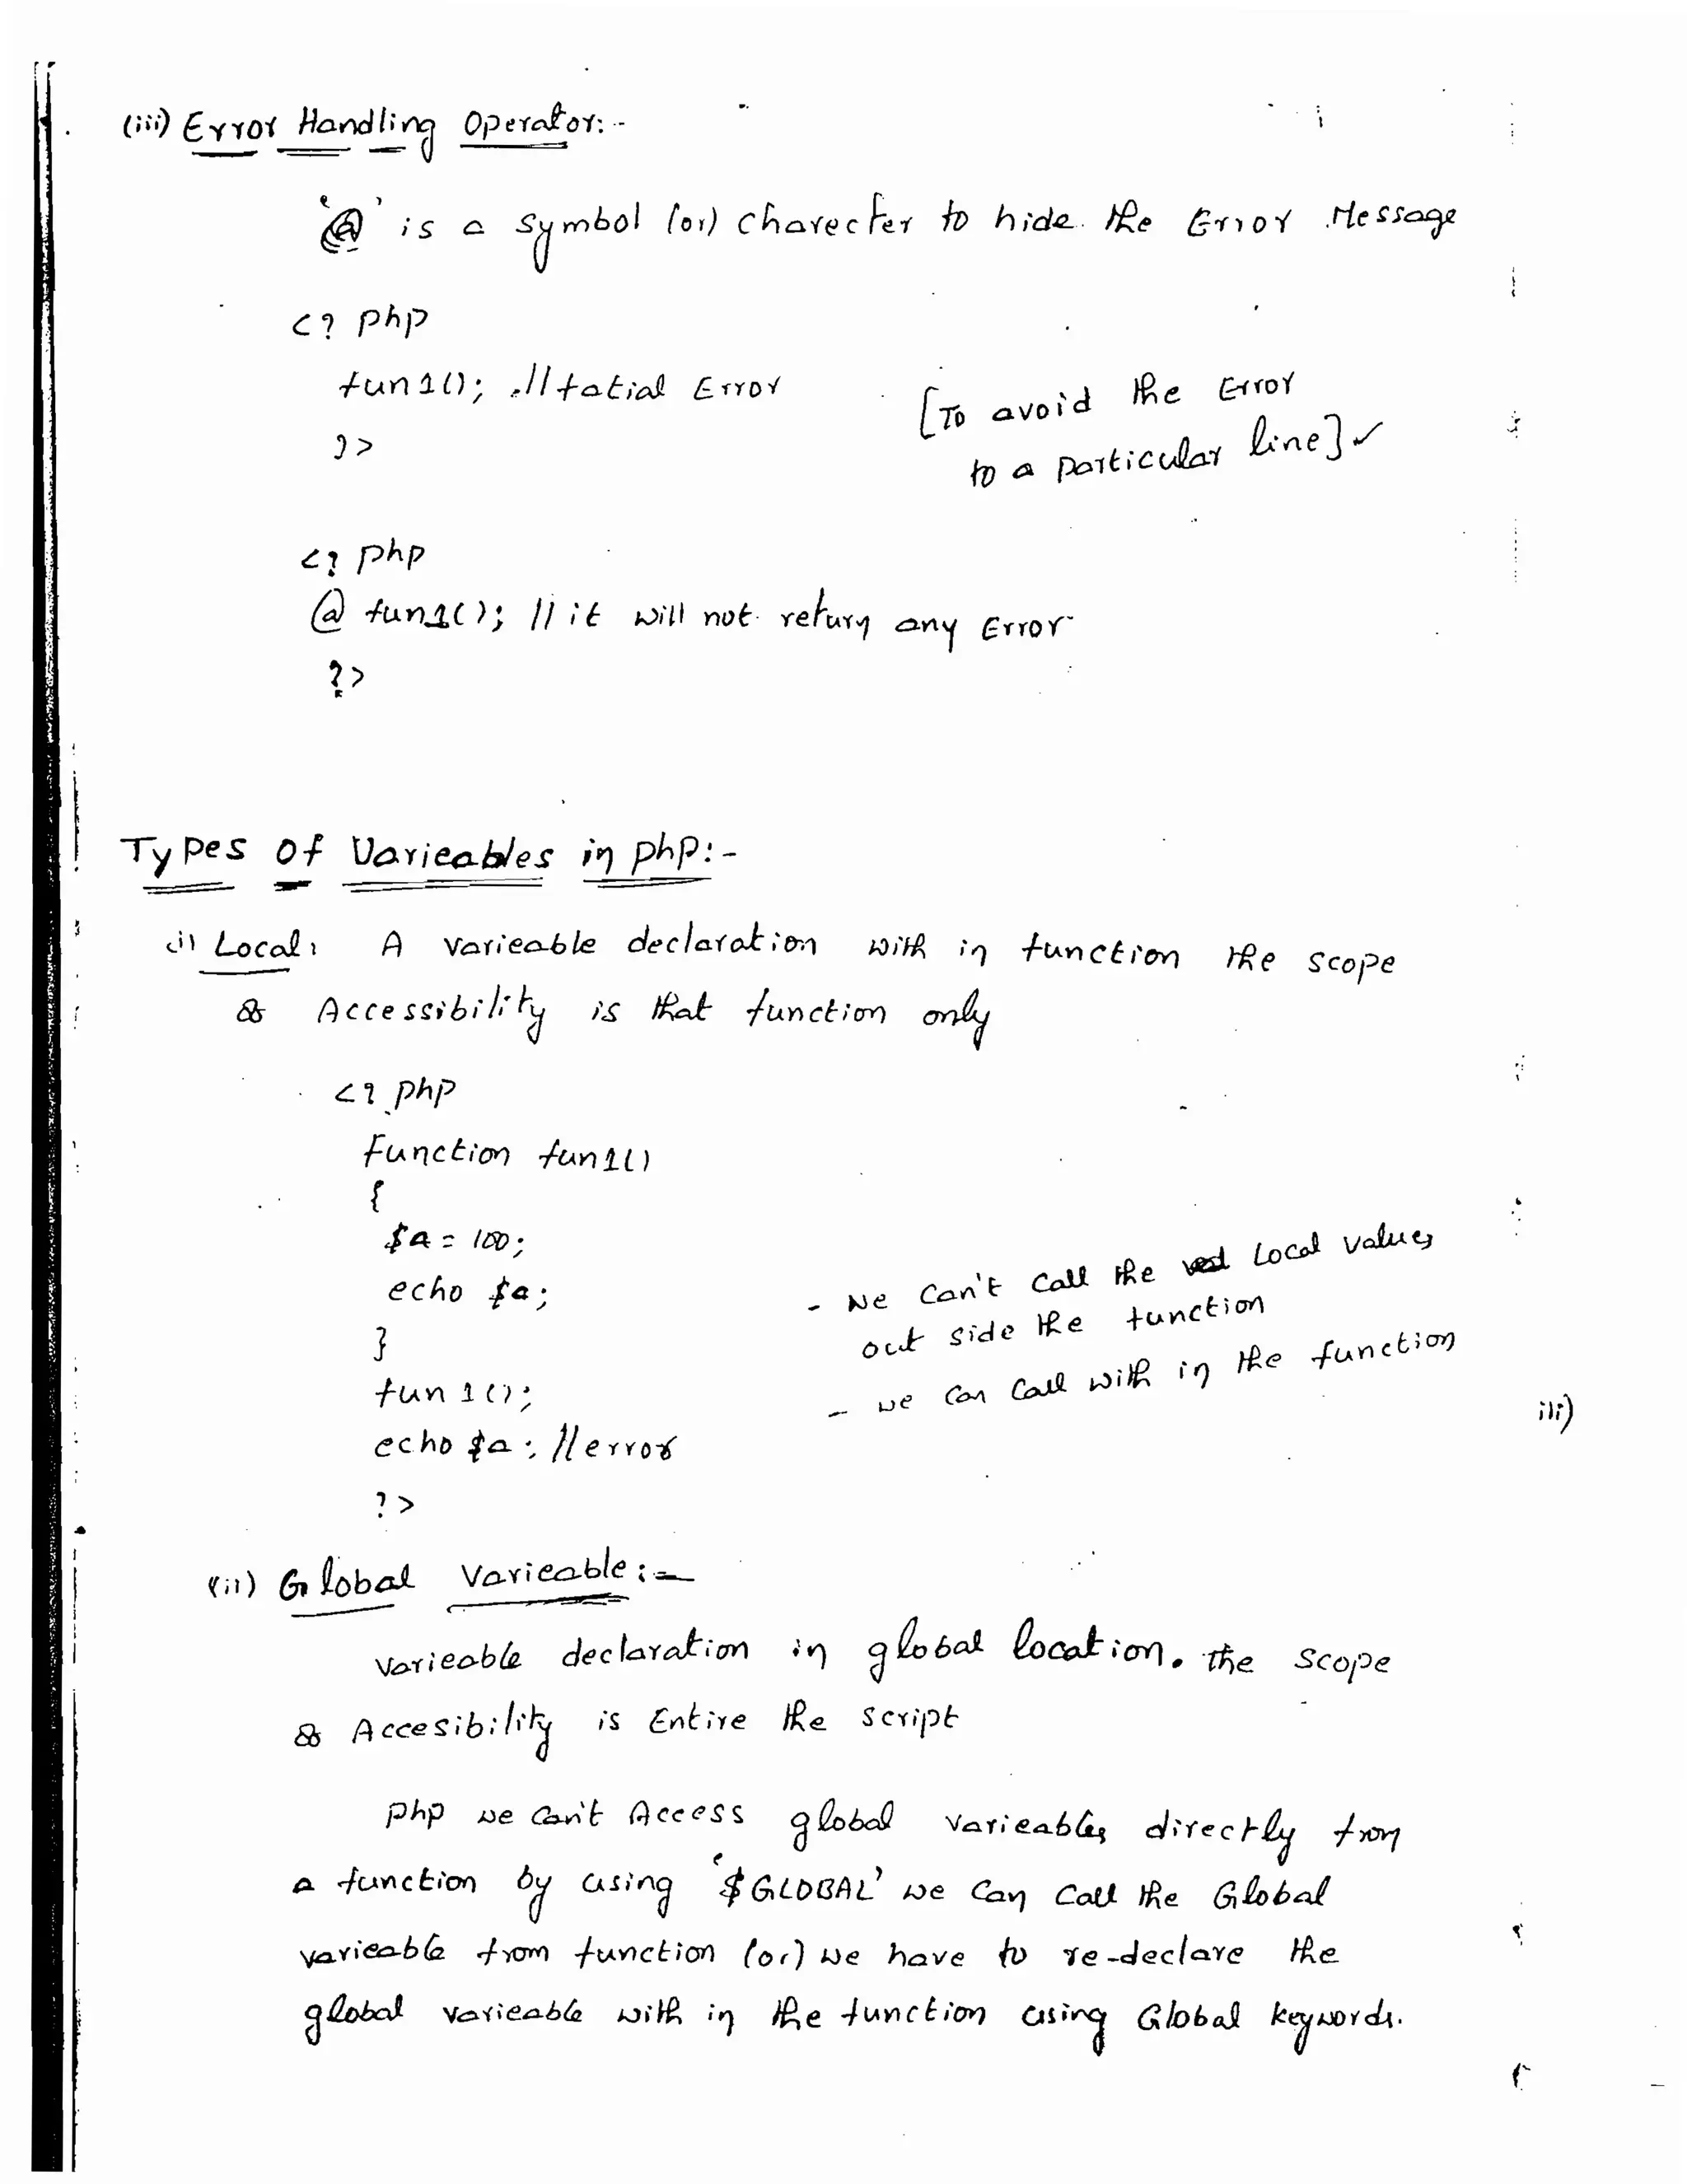 (iii) Error Handling Operator:-
'@' is a symbol (or) charecter to hide the Error Message
<? php
fun1(); //fatial Error
?>
[To avoid the Error
to a particular line] ✓
<? php
@ fun1(); // it will not return any Error
?>
Types of Varieables in php:-
(i) Local: A varieable declaration with in function the scope
& Accessibility is that function only
<? php
Function fun1()
{
$a = 100;
echo $a;
}
fun1();
echo $a; //error
?>
- we can't call the Local values
out side the function
- we can call with in the function
iii)
(ii) Global Varieable:-
varieable declaration in global location. the scope
& Accesibility is Entire the script
php we can't Access global varieables directly from
a function by using '$GLOBAL' we can call the Global
varieable from function (or) we have to re-declare the
global varieable with in the function using Global keywords.